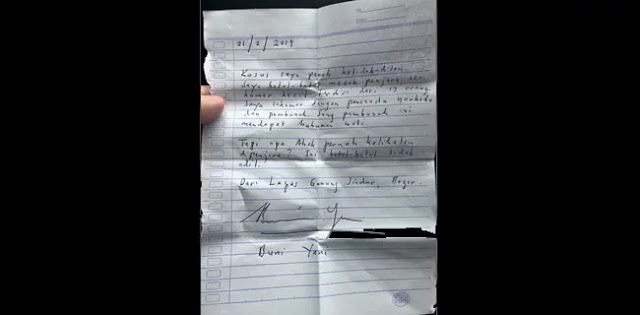 21/2/2019
Kasus saya penuh ketidakadilan.
Saya betul-betul masuk penjara, se-
kamar kecil terdiri dari 13 orang.
Saya sekamar dengan pencandu narkoba
dan pembunuh. Sang pembunuh ini
mendapat hukuman mati.
Tapi apa Ahok pernah kelihatan
dipenjara? Ini betul-betul tidak
adil.
Dari Lapas Gunung Sindur, Bogor.
Buni Yani